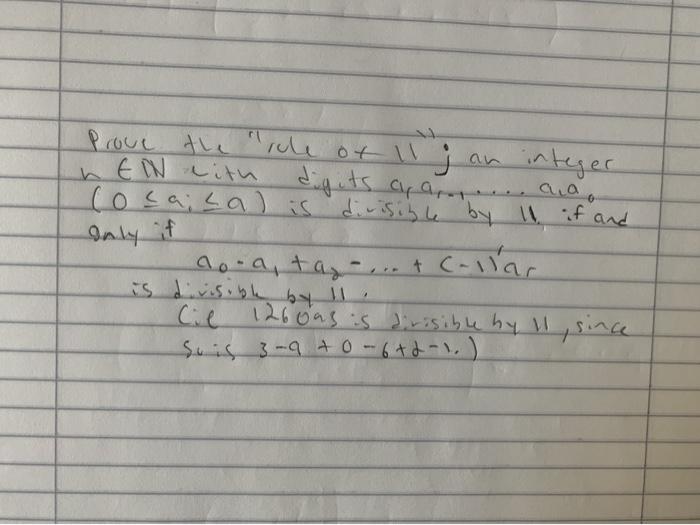 Prove the "rule of 11"; an integer
n ∈ ℕ with digits aᵣaᵣ₋₁..... a₁a₀
(0 ≤ aᵢ ≤ 9) is divisible by 11 if and
only if
a₀ - a₁ + a₂ - ... + (-1)ʳaᵣ
is divisible by 11.
(ie 126093 is divisible by 11, since
so is 3-9+0-6+2-1.)